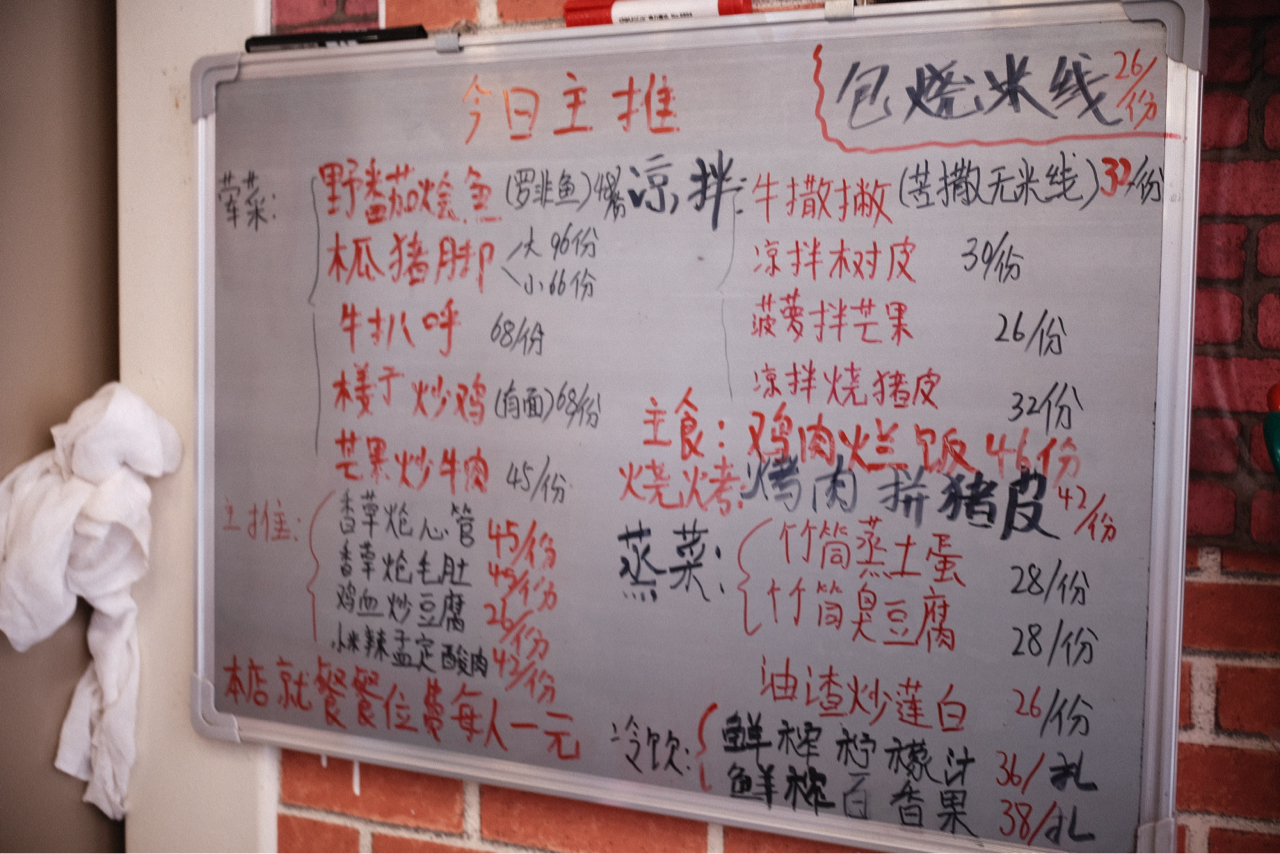 今日主推
包烧米线 26/份
荤菜:
野番茄烩鱼 (罗非鱼)
木瓜猪脚 大96份
小66份
牛扒呼 68/份
炒鸡 (有面) 68/份
芒果炒牛肉 45/份
主推:
香草炝心管 45/份
香草炝毛肚 45/份
鸡血炒豆腐 26/份
小米辣孟定酸肉 42/份
本店就餐餐位费每人一元
凉拌:
牛撒撇 (苦撒无米线) 32/份
凉拌树皮 30/份
菠萝拌芒果 26/份
凉拌烧猪皮 32份
主食: 鸡肉烂饭 46份
烧烤: 烤肉拼猪皮 42/份
蒸菜:
竹筒蒸土蛋 28/份
竹筒臭豆腐 28/份
油渣炒莲白 26/份
冷饮:
鲜榨柠檬汁 36/扎
鲜榨百香果 38/扎